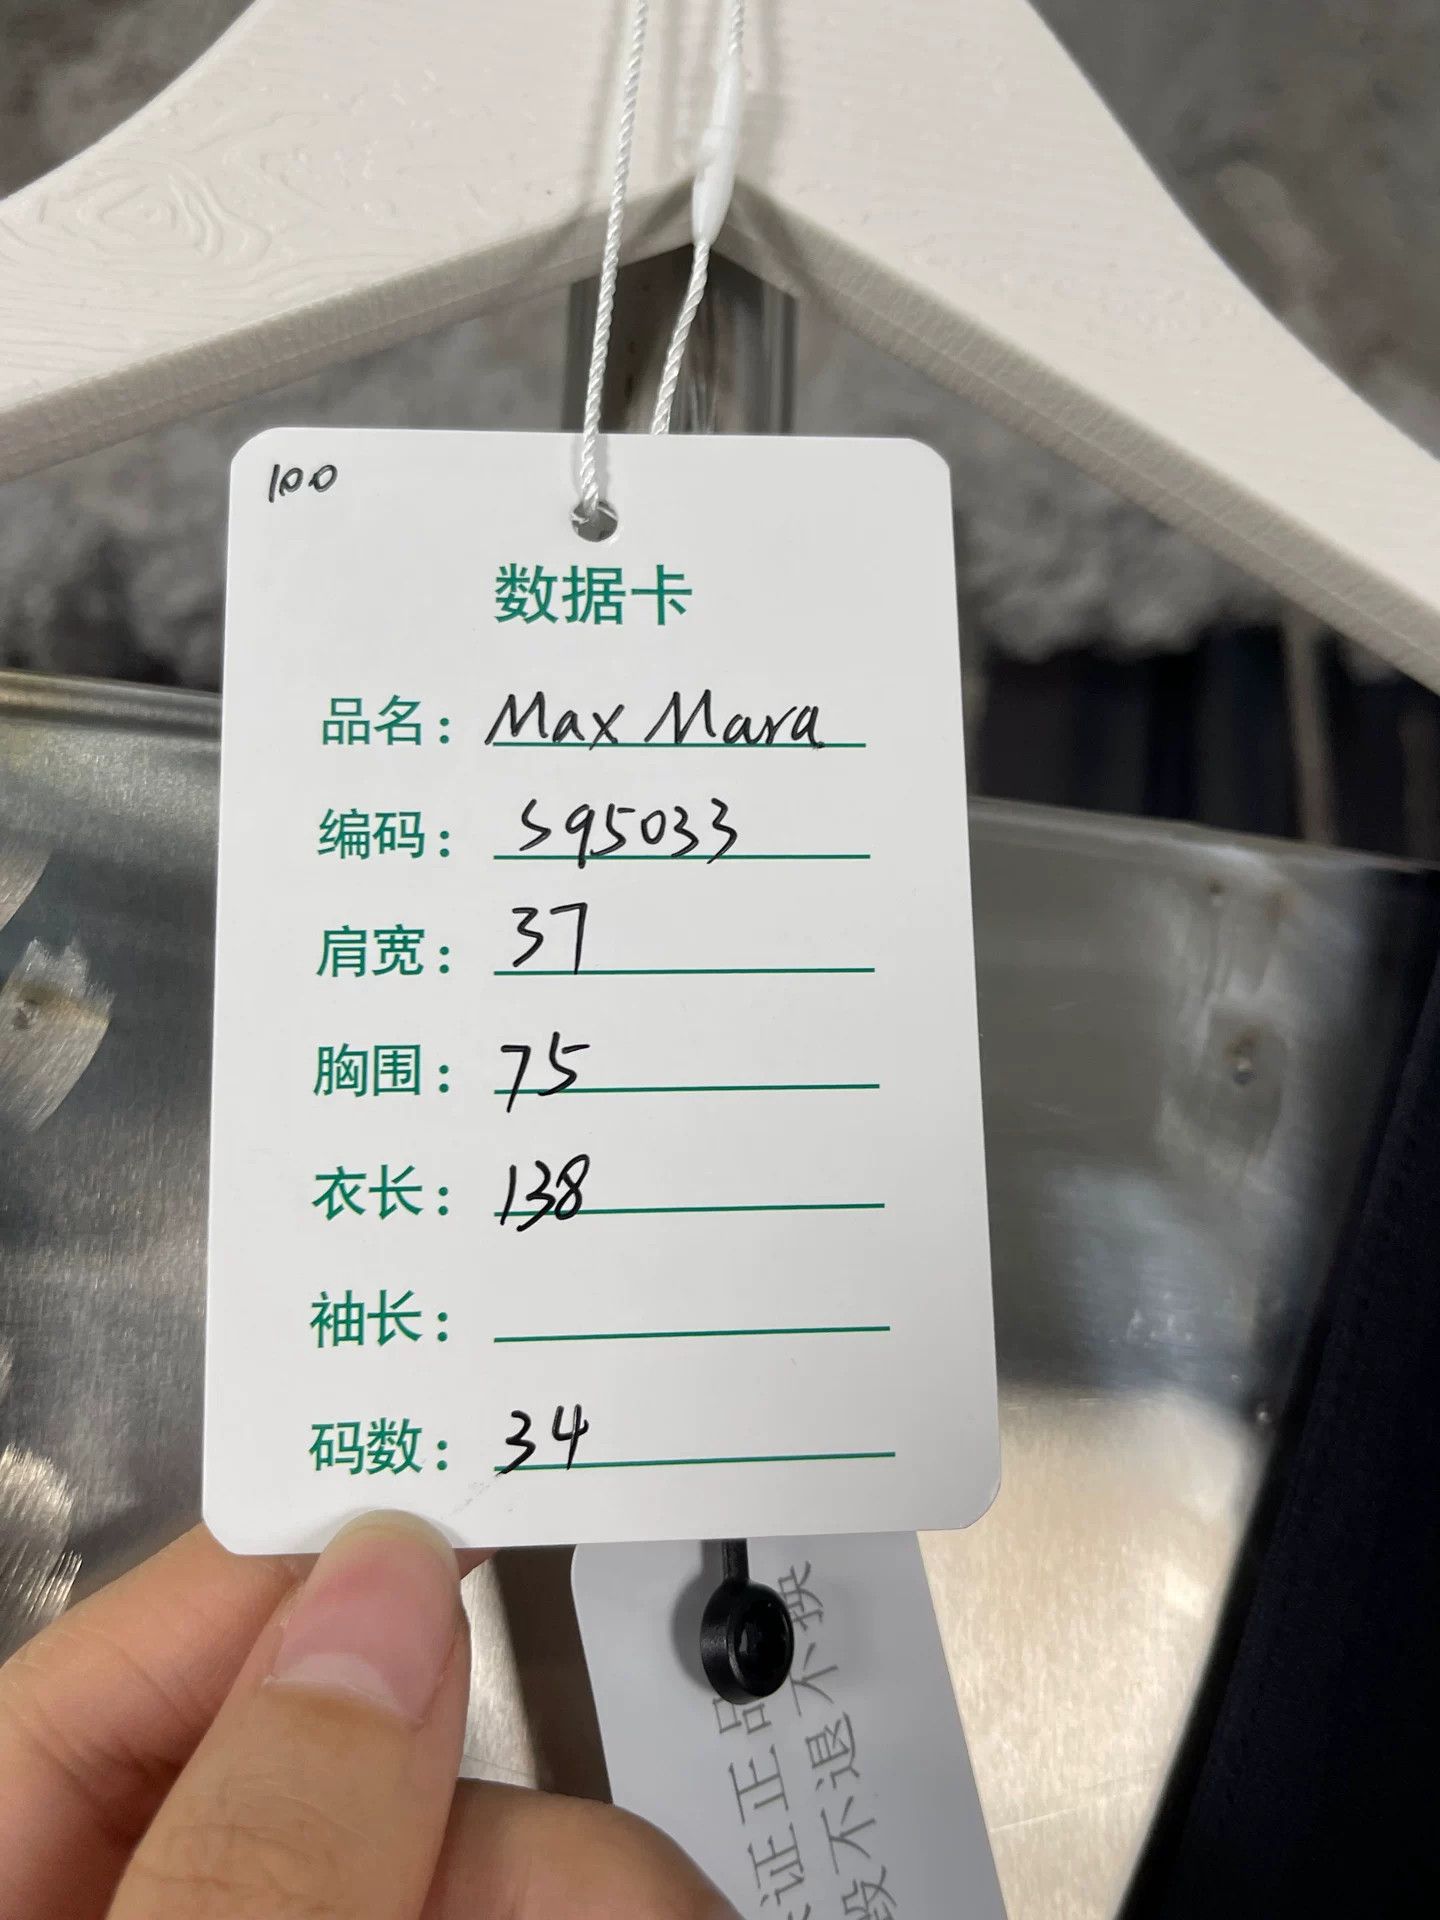 100
数据卡
品名：Max Mara
编码：S95033
肩宽：37
胸围：75
衣长：138
袖长：
码数：34
证正品
毁不退不换